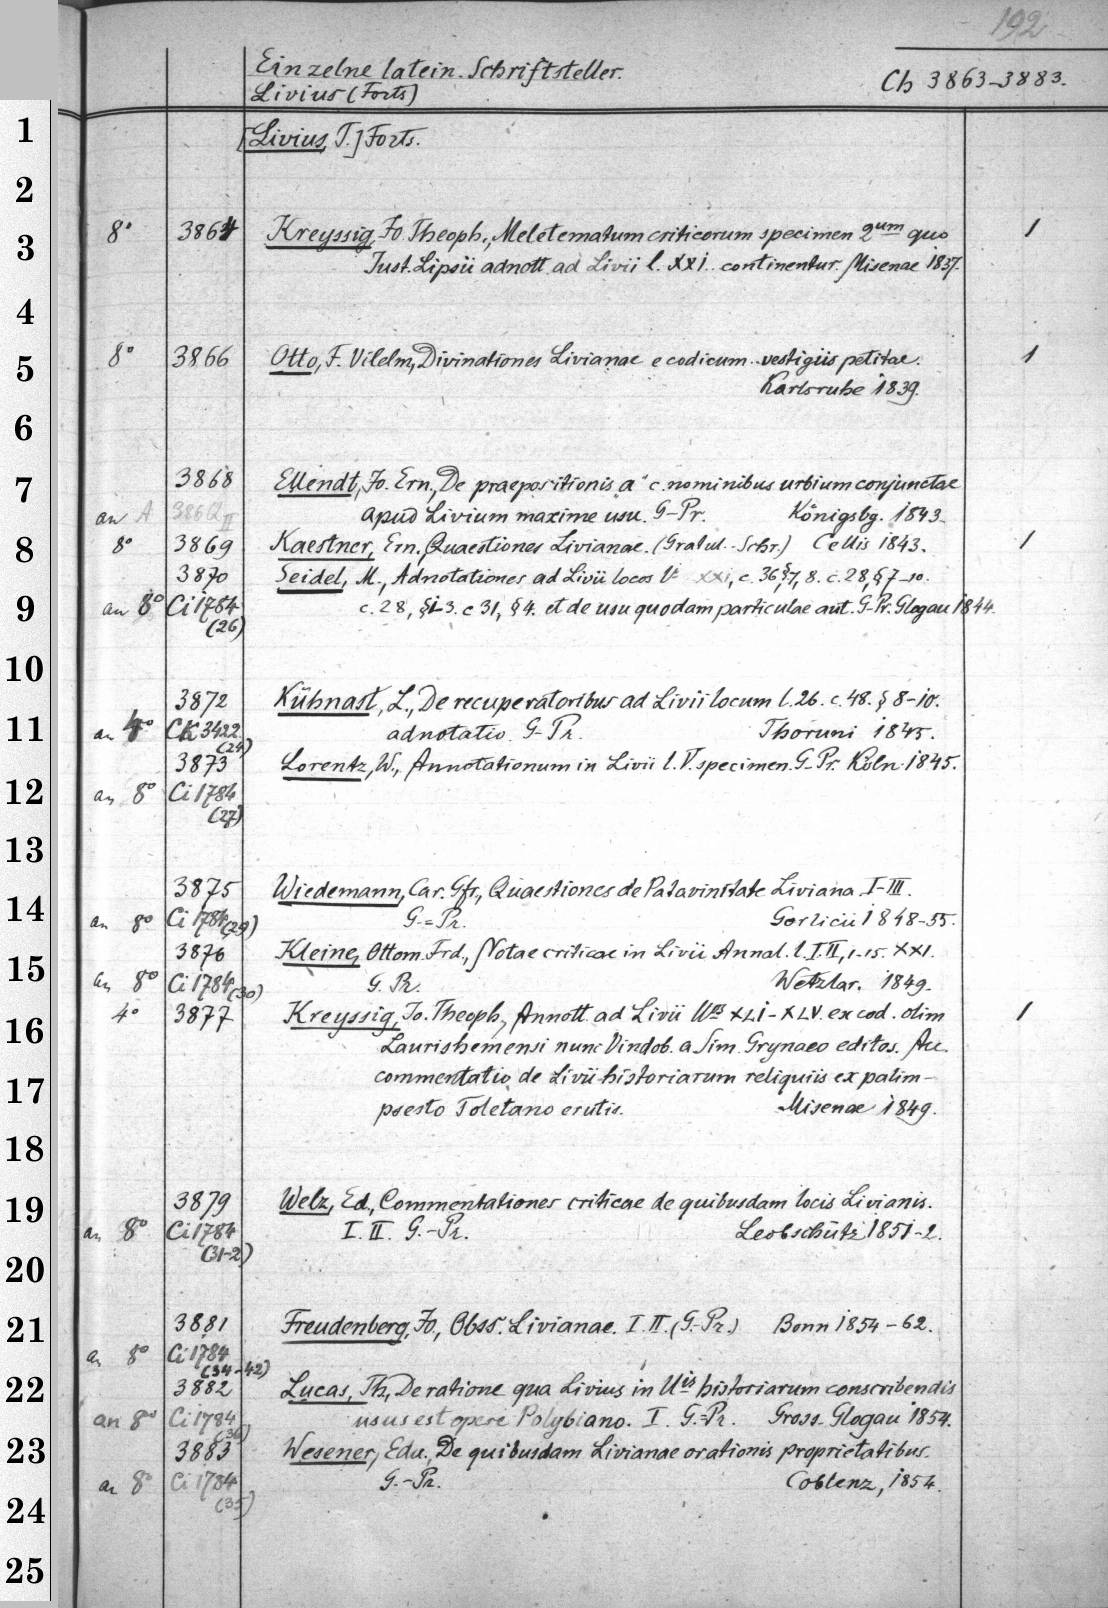 192
Einzelne latein. Schriftsteller.
Livius (Forts)
Ch 3863-3883.
[Livius, T.] Forts.
8° 3864 Kreyssig, Jo. Theoph., Meletematum criticorum specimen 2um quo 1
Just. Lipsii adnott. ad Livii l. XXI. continentur. Misenae 1837.
8° 3866 Otto, F. Vilelm, Divinationes Livianae e codicum vestigiis petitae. 1
Karlsruhe 1839.
3868 Ellendt, Jo. Ern., De praepositionis a c. nominibus urbium conjunctae
an A 386Q II apud Livium maxime usu. G-Pr. Königsbg. 1843.
8° 3869 Kaestner, Ern., Quaestiones Livianae. (Gratul.-Schr.) Cellis 1843. 1
3870 Seidel, M., Adnotationes ad Livii locos XXI, c. 36 §7, 8. c. 28, § 7-10.
an 8° Ci 1784 c. 28, §1-3. c 31, § 4. et de usu quodam particulae aut. G-Pr. Glogau 1844.
(26)
3872 Kühnast, L., De recuperatoribus ad Livii locum l. 26. c. 48. § 8-10.
an 4° CK 3422 adnotatio. G-Pr. Thoruni 1845.
(24)
3873 Lorentz, W., Annotationum in Livii l. V. specimen. G-Pr. Köln 1845.
an 8° Ci 1784
(27)
3875 Wiedemann, Car. Gfr., Quaestiones de Patavinitate Liviana I-III.
an 8° Ci 1784 (29) G.=Pr. Gorlicii 1848-55.
3876 Kleine, Ottom. Frd., Notae criticae in Livii Annal. l. I. II, 1-15. XXI.
an 8° Ci 1784 (30) G. Pr. Wetzlar. 1849.
4° 3877 Kreyssig, Jo. Theoph., Annott. ad Livii ll XLI-XLV. ex cod. olim 1
Laurishemensi nunc Vindob. a Sim. Grynaeo editos. Acc.
commentatio de Livii historiarum reliquiis ex palim-
psesto Toletano erutis. Misenae 1849.
3879 Welz, Ed., Commentationes criticae de quibusdam locis Livianis.
an 8° Ci 1784 I. II. G.-Pr. Leobschütz 1851-2.
(31-2)
3881 Freudenberg, Jo., Obss. Livianae. I. II. (G.-Pr.) Bonn 1854-62.
an 8° Ci 1784
(34-42)
3882 Lucas, Th., De ratione qua Livius in llis historiarum conscribendis
an 8° Ci 1784 usus est opere Polybiano. I. G.-Pr. Gross-Glogau 1854.
(36)
3883 Wesener, Edu., De quibusdam Livianae orationis proprietatibus.
an 8° Ci 1784 G.-Pr. Coblenz, 1854.
(35)
1
2
3
4
5
6
7
8
9
10
11
12
13
14
15
16
17
18
19
20
21
22
23
24
25